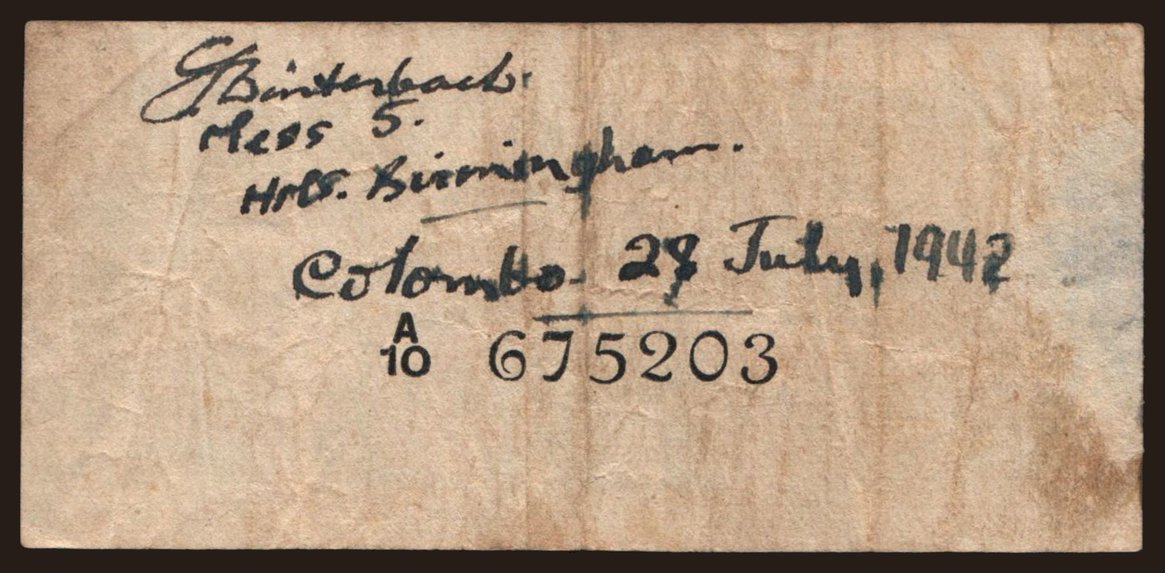 Mess 5.
HMS. Birmingham.
Colombo. 28 July, 1942
A
10 675203